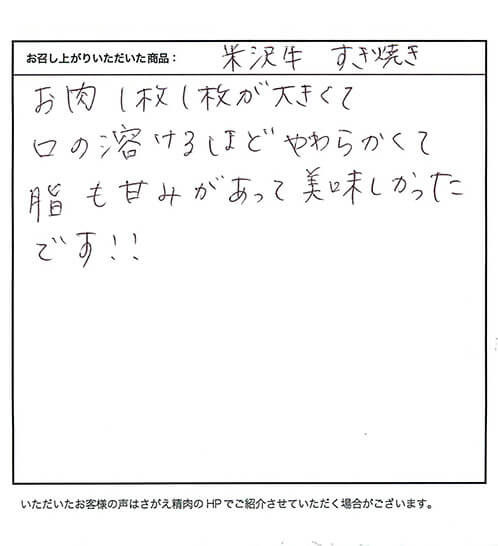 お召し上がりいただいた商品: 米沢牛 すき焼き
お肉1枚1枚が大きくて
口の溶けるほどやわらかくて
脂も甘みがあって美味しかった
です!!
いただいたお客様の声はさがえ精肉のHPでご紹介させていただく場合がございます。